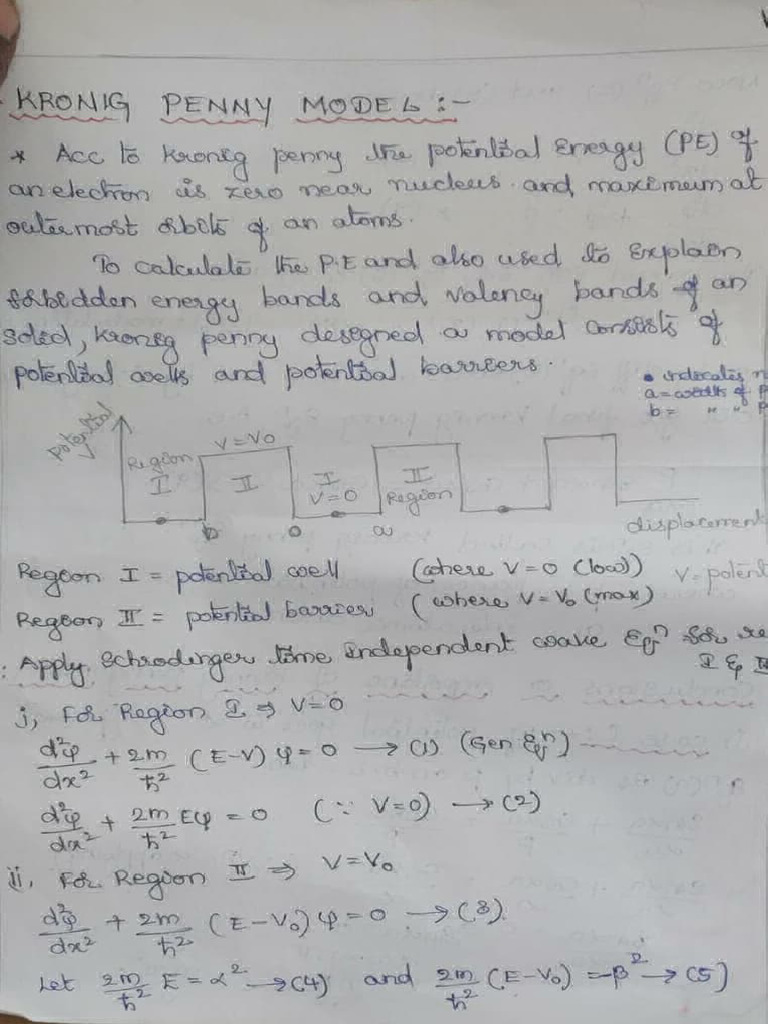 KRONIG PENNY MODEL :-
* Acc to Kronig penny the potential Energy (PE) of
an electron is zero near nucleus and maximum at
outermost orbits of an atoms.
To calculate the P.E and also used to Explain
forbidden energy bands and Valency bands of an
Solid, Kronig penny designed a model consists of
potential wells and potential barriers.
• indicates
a = width of
b = " "
potential
V = V₀
Region I
II
I
V = 0
II
Region
b
0
a
displacement
Region I = potential well (where V = 0 (low)) V = potent
Region II = potential barrier (where V = V₀ (max)
: Apply Schrodinger time independent wave Eqⁿ for re
I & II
i, For Region I ⇒ V = 0
d²φ/dx² + 2m/ħ² (E-V) φ = 0 → (1) (Gen Eqⁿ)
d²φ/dx² + 2m/ħ² Eφ = 0 (∵ V = 0) → (2)
ii, For Region II ⇒ V = V₀
d²φ/dx² + 2m/ħ² (E - V₀) φ = 0 → (3)
Let 2m/ħ² E = α² → (4) and 2m/ħ² (E - V₀) = -β² → (5)